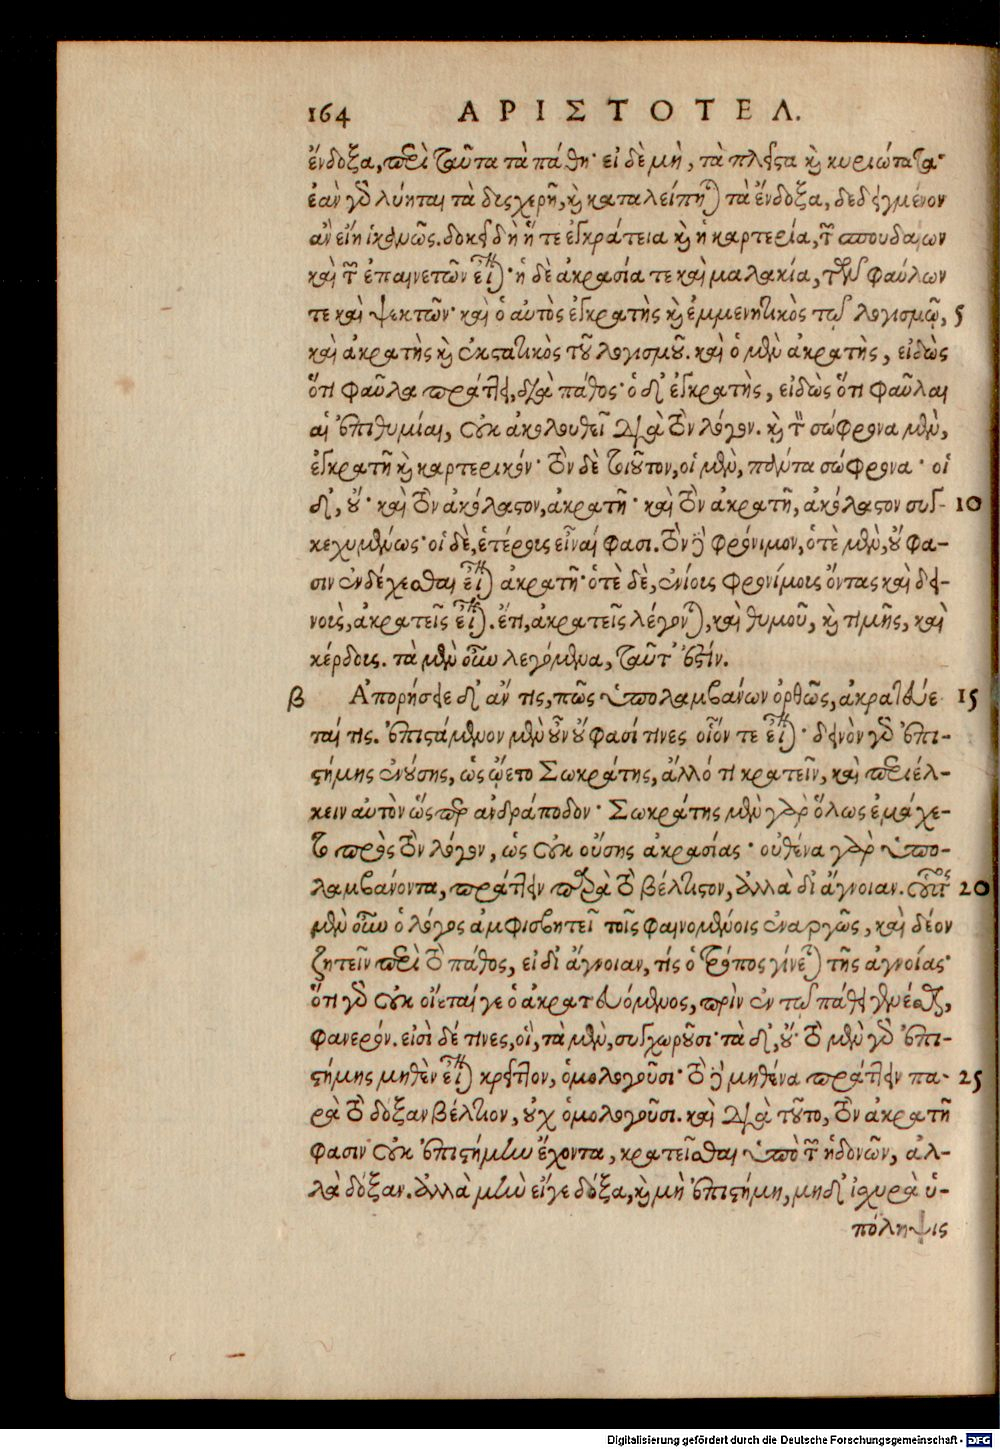 164 ΑΡΙΣΤΟΤΕΛ.
ἔνδοξα, περὶ ταῦτα τὰ πάθη· εἰ δὲ μὴ, τὰ πλεῖστα καὶ κυριώτατα·
ἐὰν γὸ λύηται τὰ δυσχερῆ, καὶ καταλείπηται τὰ ἔνδοξα, δεδειγμένον
ἂν εἴη ἱκανῶς. δοκεῖ δὴ ἥ τε ἐγκράτεια καὶ ἡ καρτερία, τῶν σπουδαίων
καὶ τῶν ἐπαινετῶν εἶναι· ἡ δὲ ἀκρασία τε καὶ μαλακία, τῶν φαύλων
τε καὶ ψεκτῶν· καὶ ὁ αὐτὸς ἐγκρατὴς καὶ ἐμμενητικὸς τῷ λογισμῷ, 5
καὶ ἀκρατὴς καὶ ἐκστατικὸς τοῦ λογισμοῦ. καὶ ὁ μὲν ἀκρατὴς, εἰδὼς
ὅτι φαῦλα πράττει, διὰ πάθος· ὁ δ' ἐγκρατὴς, εἰδὼς ὅτι φαῦλαι
αἱ ἐπιθυμίαι, οὐκ ἀκολουθεῖ διὰ τὸν λόγον. καὶ τὸν σώφρονα μὲν,
ἐγκρατῆ καὶ καρτερικόν· τὸν δὲ τοιοῦτον, οἱ μὲν, πάντα σώφρονα· οἱ
δ', οὔ· καὶ τὸν ἀκόλαστον, ἀκρατῆ· καὶ τὸν ἀκρατῆ, ἀκόλαστον συγ- 10
κεχυμένως· οἱ δὲ, ἑτέρους εἶναί φασι. τὸν δὲ φρόνιμον, ὁτὲ μὲν, οὔ φα-
σιν ἐνδέχεσθαι εἶναι ἀκρατῆ· ὁτὲ δὲ, ἐνίους φρονίμους ὄντας καὶ δει-
νοὺς, ἀκρατεῖς εἶναι. ἔτι, ἀκρατεῖς λέγονται, καὶ θυμοῦ, καὶ τιμῆς, καὶ
κέρδους. τὰ μὲν οὖν λεγόμενα, ταῦτ' ἐστίν.
β Ἀπορήσειε δ' ἄν τις, πῶς ὑπολαμβάνων ὀρθῶς, ἀκρατεύε 15
ταί τις. ἐπιστάμενον μὲν οὖν οὔ φασί τινες οἷόν τε εἶναι· δεινὸν γὸ ἐπι-
στήμης ἐνούσης, ὡς ᾤετο Σωκράτης, ἄλλό τι κρατεῖν, καὶ περιέλ-
κειν αὐτὸν ὥσπερ ἀνδράποδον· Σωκράτης μὲν γὰρ ὅλως ἐμάχε-
το πρὸς τὸν λόγον, ὡς οὐκ οὔσης ἀκρασίας· οὐθένα γὰρ ὑπο-
λαμβάνοντα, πράττειν παρὰ τὸ βέλτιστον, ἀλλὰ δι' ἄγνοιαν. οὗτος 20
μὲν οὖν ὁ λόγος ἀμφισβητεῖ τοῖς φαινομένοις ἐναργῶς, καὶ δέον
ζητεῖν περὶ τὸ πάθος, εἰ δι' ἄγνοιαν, τίς ὁ τρόπος γίνεται τῆς ἀγνοίας·
ὅτι γὸ οὐκ οἴεταί γε ὁ ἀκρατευόμενος, πρὶν ἐν τῷ πάθει γενέσθαι,
φανερόν. εἰσὶ δέ τινες, οἳ, τὰ μὲν, συγχωροῦσι· τὰ δ', οὔ· τὸ μὲν γὸ ἐπι-
στήμης μηθὲν εἶναι κρεῖττον, ὁμολογοῦσι· τὸ δὲ μηθένα πράττειν πα- 25
ρὰ τὸ δόξαν βέλτιον, οὐχ ὁμολογοῦσι. καὶ διὰ τοῦτο, τὸν ἀκρατῆ
φασιν οὐκ ἐπιστήμην ἔχοντα, κρατεῖσθαι ὑπὸ τῶν ἡδονῶν, ἀλ-
λὰ δόξαν. ἀλλὰ μὴν εἴγε δόξα, καὶ μὴ ἐπιστήμη, μηδ' ἰσχυρὰ ὑ-
πόληψις
Digitalisierung gefördert durch die Deutsche Forschungsgemeinschaft - DFG